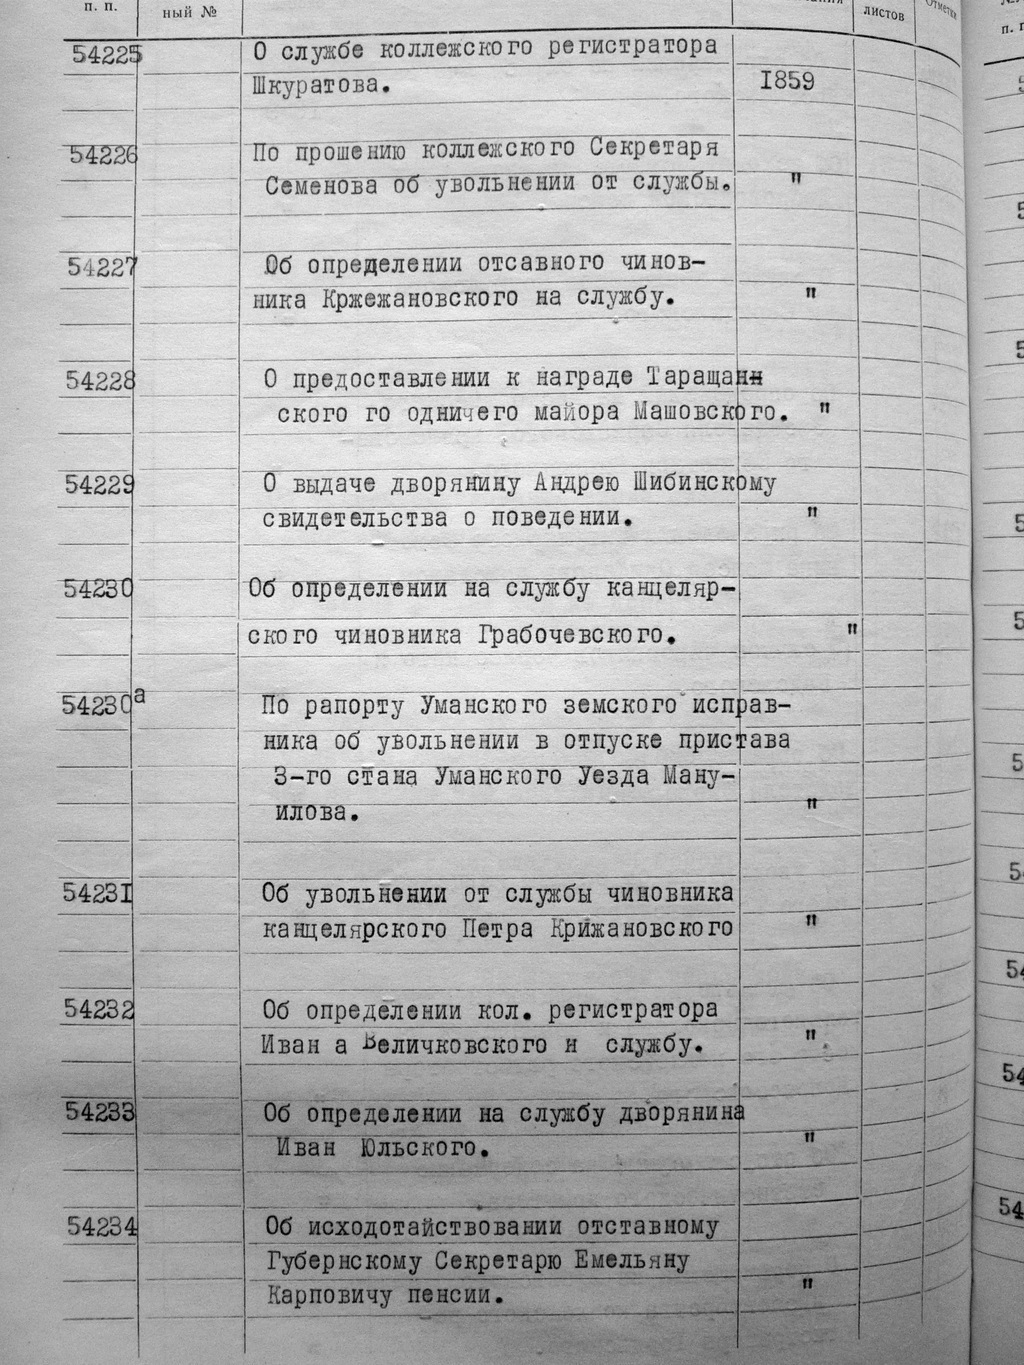 п. п.
ный №
листов
Отметки
54225 О службе коллежского регистратора
Шкуратова. 1859
54226 По прошению коллежского Секретаря
Семенова об увольнении от службы. "
54227 Об определении отсавного чинов-
ника Кржежановского на службу. "
54228 О предоставлении к награде Таращанн
ского го одничего майора Машовского. "
54229 О выдаче дворянину Андрею Шибинскому
свидетельства о поведении. "
54230 Об определении на службу канцеляр-
ского чиновника Грабочевского. "
54230а По рапорту Уманского земского исправ-
ника об увольнении в отпуске пристава
3-го стана Уманского Уезда Ману-
илова. "
54231 Об увольнении от службы чиновника
канцелярского Петра Крижановского "
54232 Об определении кол. регистратора
Иван а Величковского н службу. "
54233 Об определении на службу дворянина
Иван Юльского. "
54234 Об исходотайствовании отставному
Губернскому Секретарю Емельяну
Карповичу пенсии. "